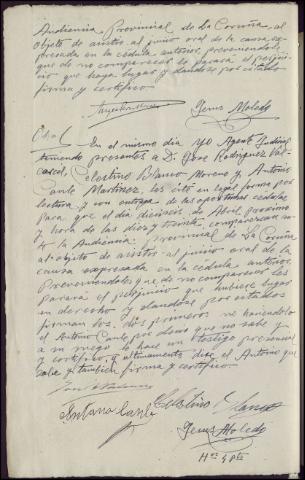 Audiencia Provincial de La Coruña, al
objeto de asistir al juicio oral de la causa ex-
presada en la cédula anterior, previniéndole
que de no comparecer le parará el perjui-
cio que haya lugar y dándose por citado
firma y certifico.
Jesus Moledo
Otra/ En el mismo día yo Agente Judicial
teniendo presentes a D. José Rodriguez Val-
carcel, Celestino Blanco Moreno y Antonio
Cante Martinez, les cité en legal forma por
lectura y con entrega de las oportunas cédulas
para que el día dieciseis de Abril próximo
y hora de las diez y treinta, comparezcan an-
te la Audiencia Provincial de La Coruña
al objeto de asistir al juicio oral de la
causa expresada en la cédula anterior.
Previniéndoles que de no comparecer les
parará el perjuicio que hubiere lugar
en derecho y dándose por citados
firman los dos primeros no haciéndolo
el Antonio Cante por decir que no sabe y
a su ruego lo hace un testigo presencial
y certifico, y ultimamente dice el Antonio que
sabe y también firma y certifico.
Antonio Cante Celestino Blanco
Jesus Moledo